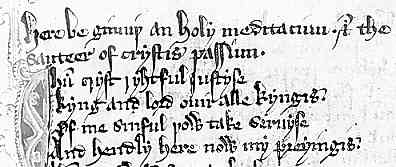 Here be gynniþ an holy meditacium. Of the
sauteer of crystis passium.
Ihu cryst ryhtful iustyse
Kyng and lord ouir alle kyngis
Of me sinful þow take seruyse
And hendly here now my preyingis